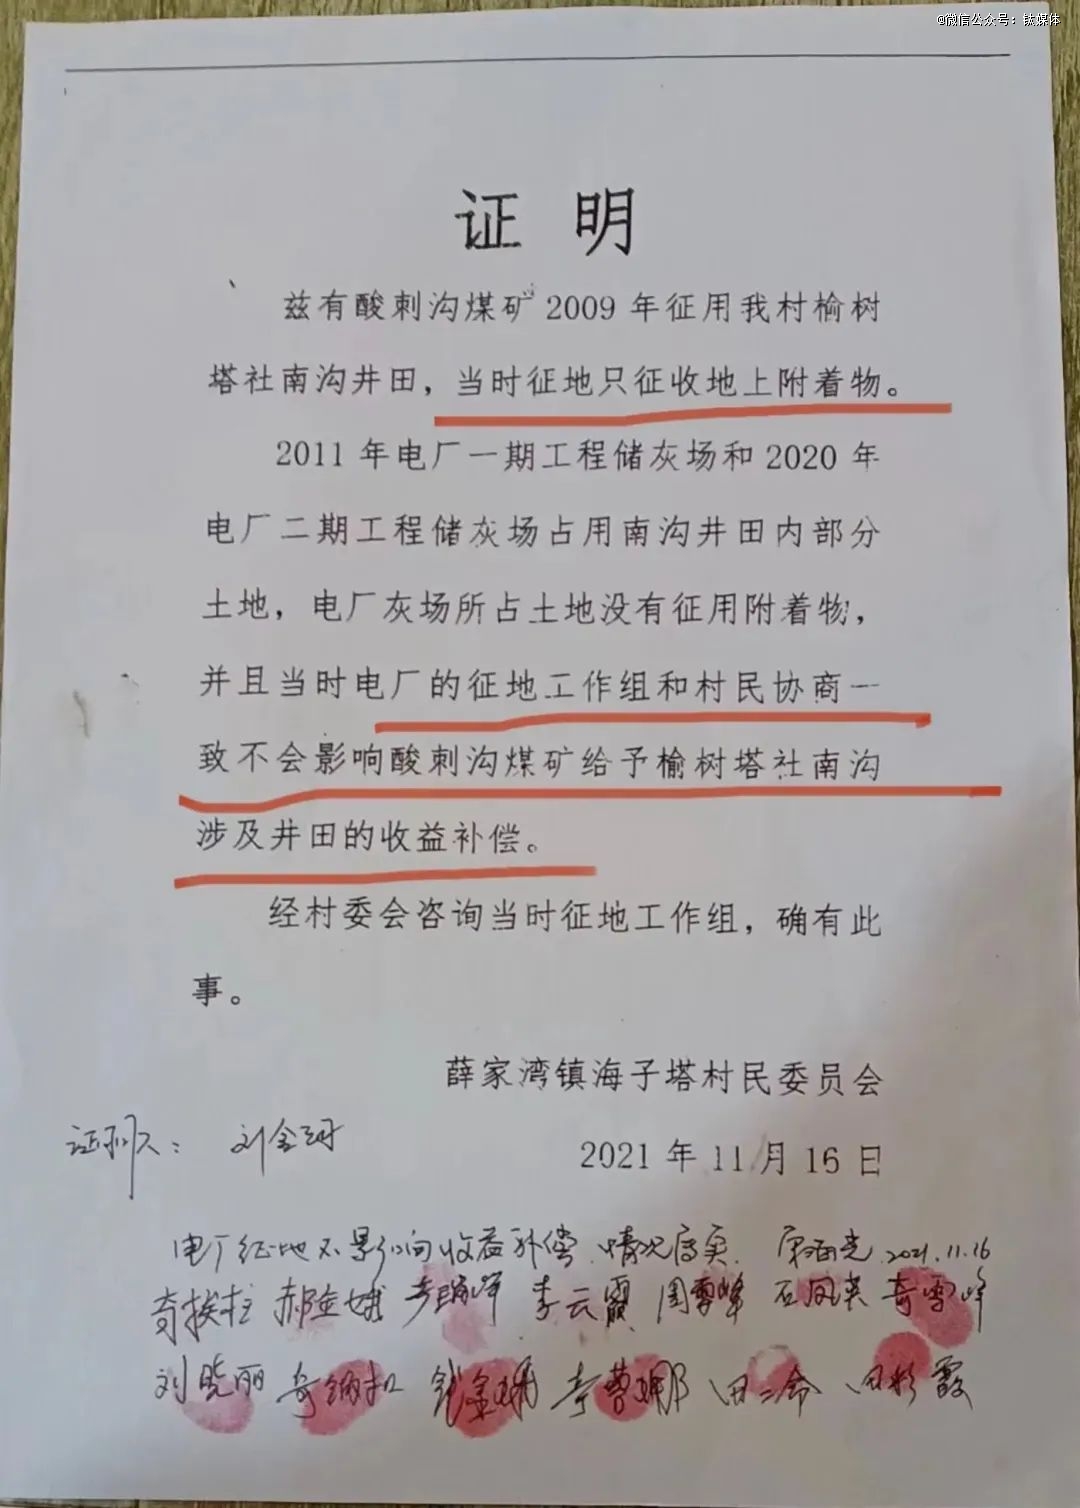 @微信公众号：钛媒体
证 明
兹有酸刺沟煤矿2009年征用我村榆树
塔社南沟井田，当时征地只征收地上附着物。
2011年电厂一期工程储灰场和2020年
电厂二期工程储灰场占用南沟井田内部分
土地，电厂灰场所占土地没有征用附着物，
并且当时电厂的征地工作组和村民协商一
致不会影响酸刺沟煤矿给予榆树塔社南沟
涉及井田的收益补偿。
经村委会咨询当时征地工作组，确有此
事。
薛家湾镇海子塔村民委员会
证明人： 刘金
2021年11月16日
电厂征地不影响收益补偿 情况属实 2021.11.16
奇挨柱 郝金娥 李云霞 周雪峰 石凤英 奇雪峰
刘晓丽 田二命 田彩霞